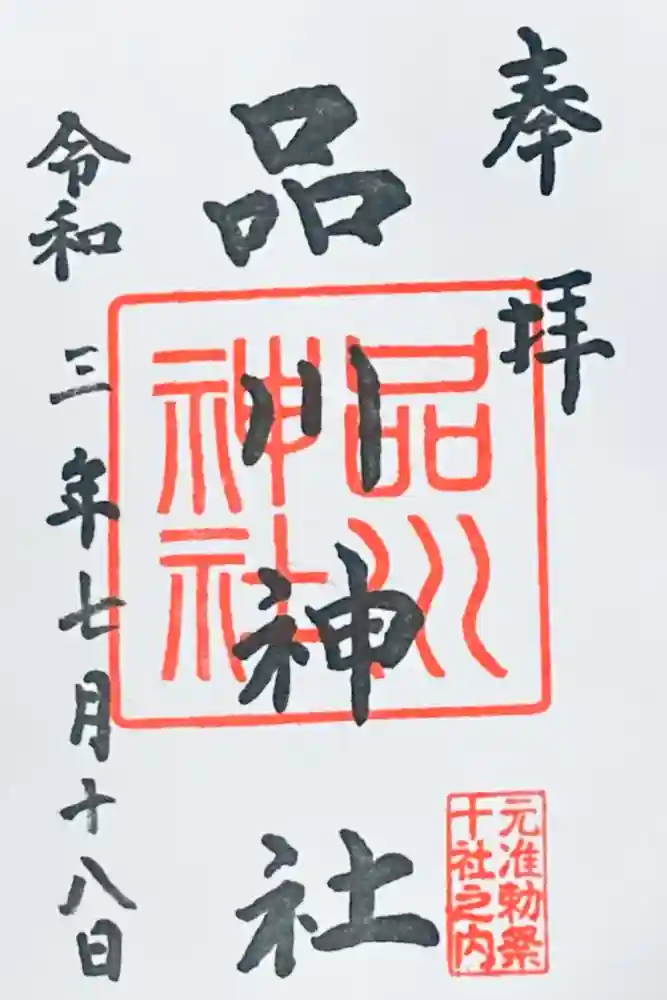 奉拝
品川神社
品川
神社
令和三年七月十八日
元准勅祭
十社之内